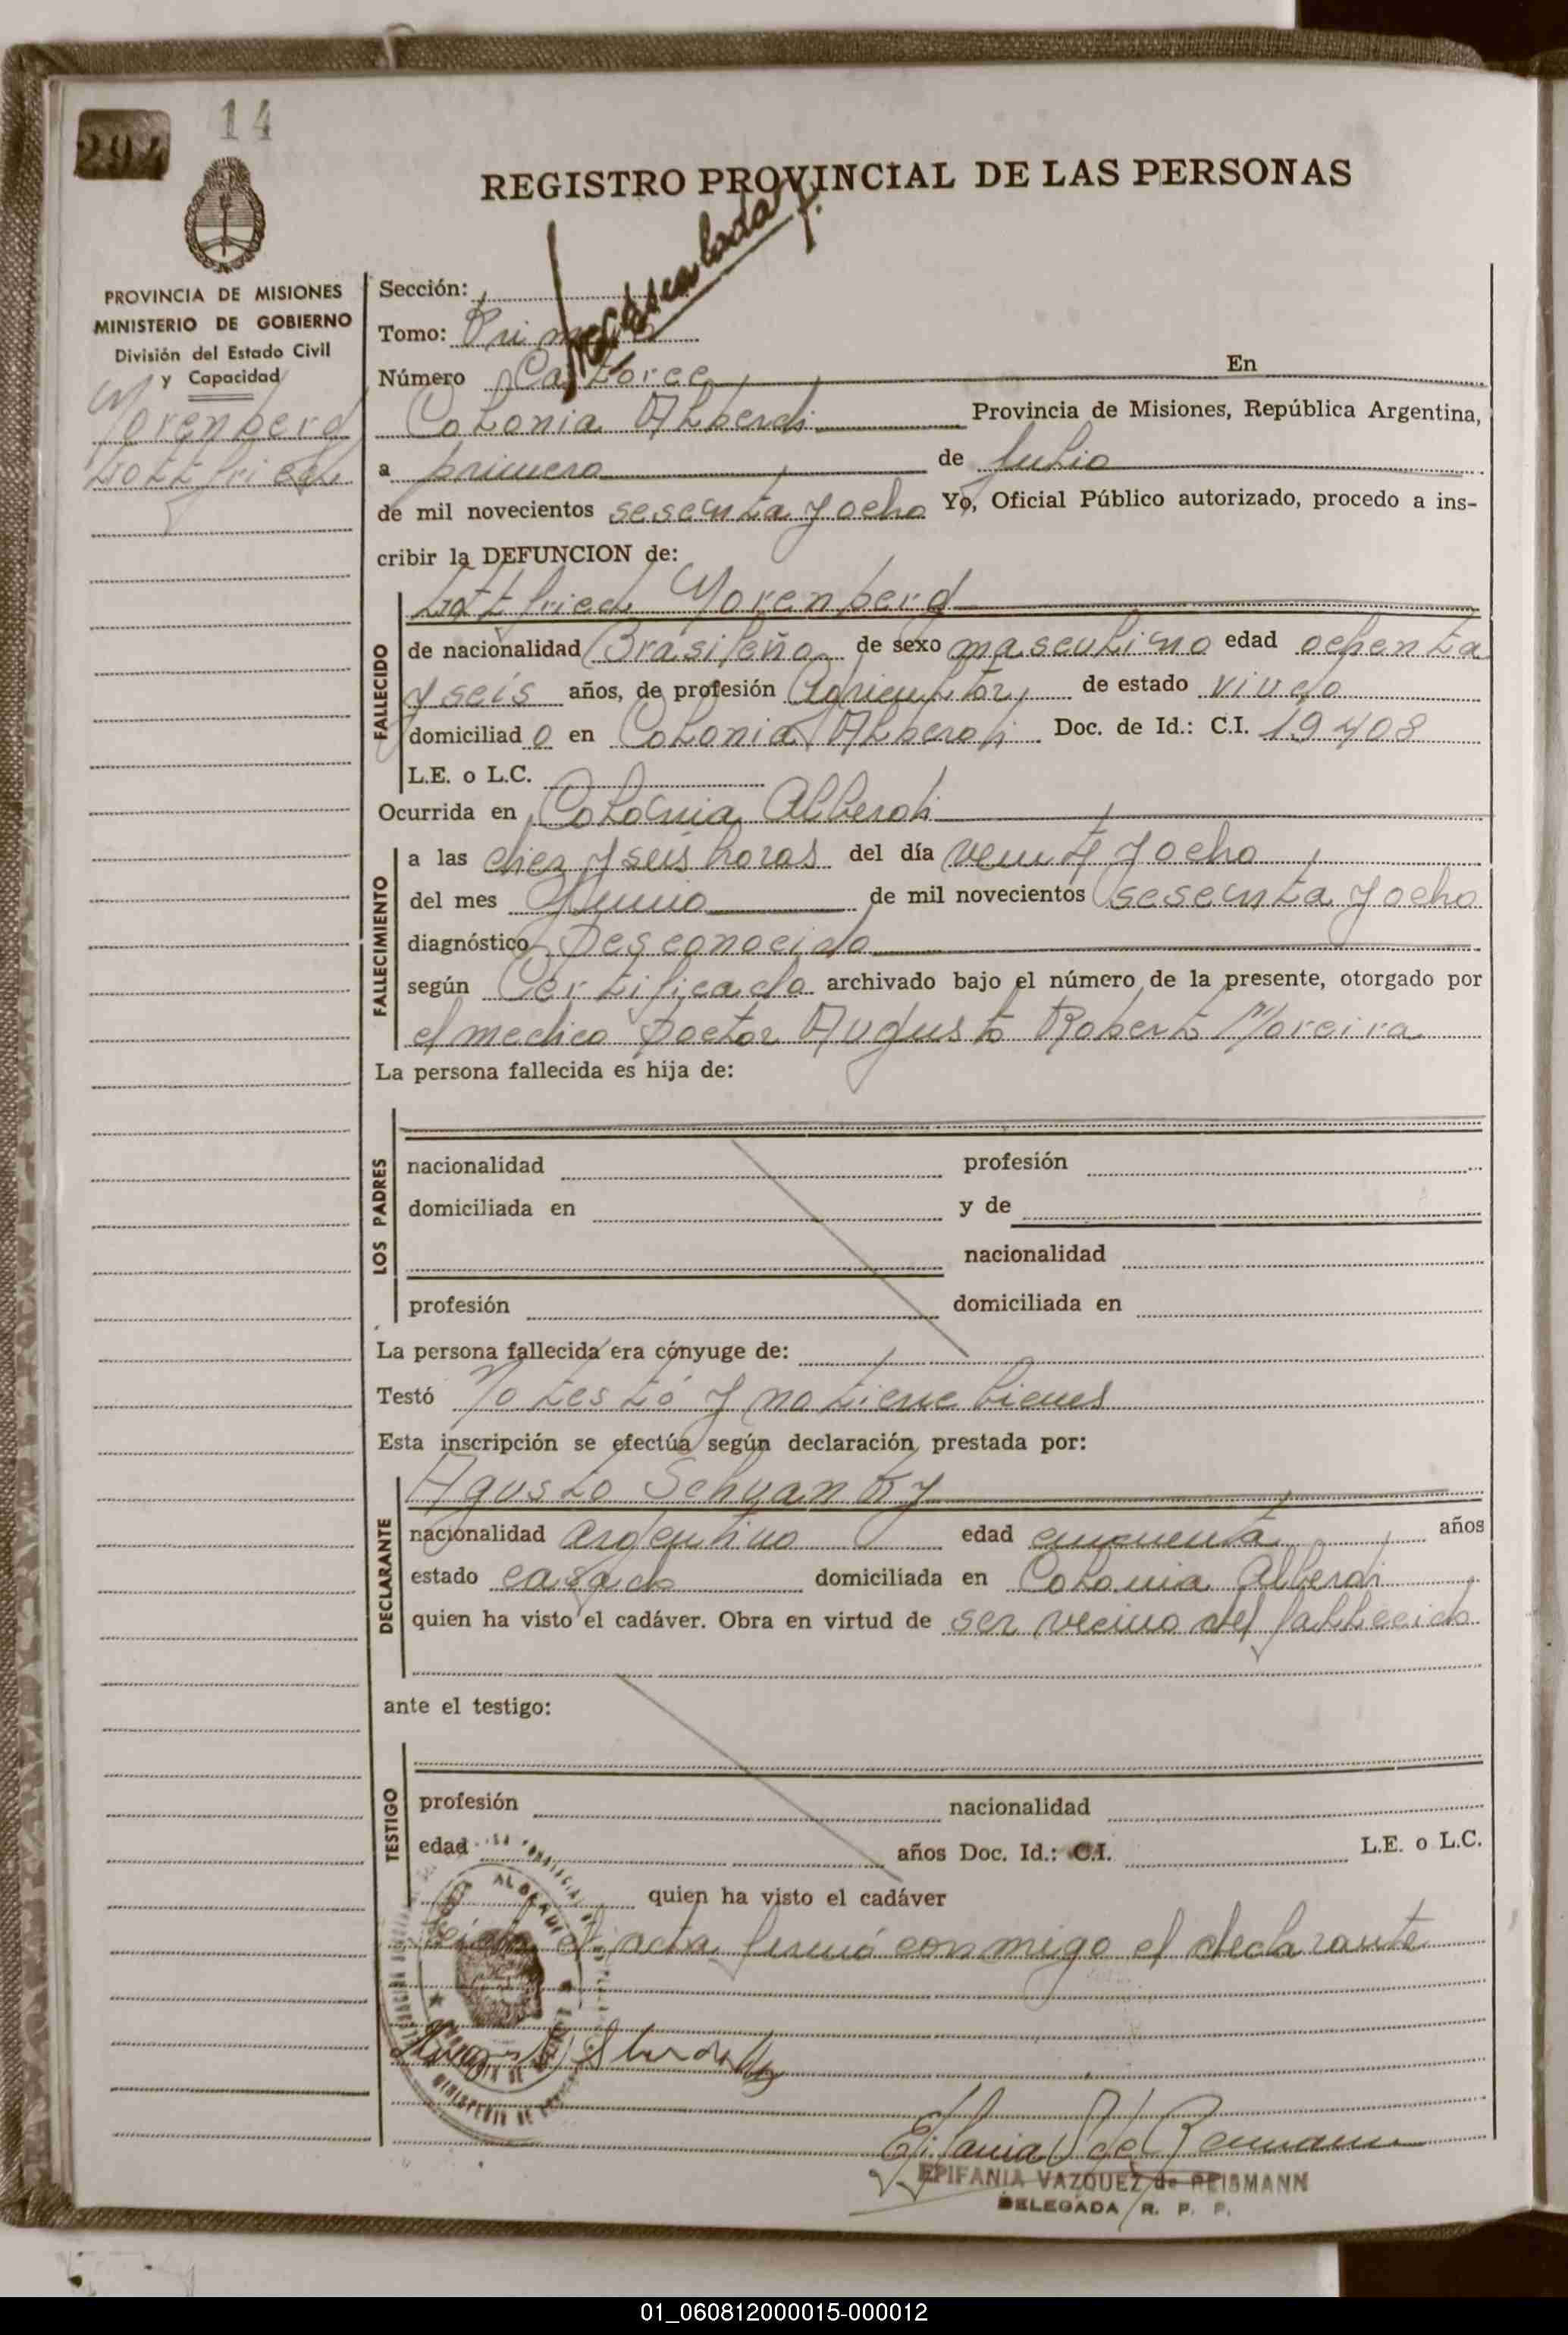 14
294
REGISTRO PROVINCIAL DE LAS PERSONAS
PROVINCIA DE MISIONES
MINISTERIO DE GOBIERNO
División del Estado Civil
y Capacidad
Morenberg
Gottfried
Sección:
Tomo: Primero
Número Catorce En
Colonia Alberdi Provincia de Misiones, República Argentina,
a primero de Julio
de mil novecientos sesenta y ocho Yo, Oficial Público autorizado, procedo a ins-
cribir la DEFUNCION de:
Gottfried Morenberg
FALLECIDO
de nacionalidad Brasileño de sexo masculino edad ochenta
y seis años, de profesión Agricultor, de estado viudo
domiciliad o en Colonia Alberdi Doc. de Id.: C.I. 19408
L.E. o L.C.
Ocurrida en Colonia Alberdi
FALLECIMIENTO
a las diez y seis horas del día veint y ocho
del mes Junio de mil novecientos sesenta y ocho
diagnóstico Desconocido
según Certificado archivado bajo el número de la presente, otorgado por
el medico Doctor Augusto Roberto Moreira
La persona fallecida es hija de:
LOS PADRES
nacionalidad profesión
domiciliada en y de
nacionalidad
profesión domiciliada en
La persona fallecida era cónyuge de:
Testó No testó y no tiene bienes
Esta inscripción se efectúa según declaración prestada por:
Agusto Schvantky
DECLARANTE
nacionalidad argentino edad cincuenta años
estado casado domiciliada en Colonia Alberdi
quien ha visto el cadáver. Obra en virtud de ser vecino del fallecido
ante el testigo:
TESTIGO
profesión nacionalidad
edad años Doc. Id.: C.I. L.E. o L.C.
quien ha visto el cadáver
Leida el acta firmó conmigo el declarante
EPIFANIA VAZQUEZ de REISMANN
DELEGADA R. P. P.
01_060812000015-000012